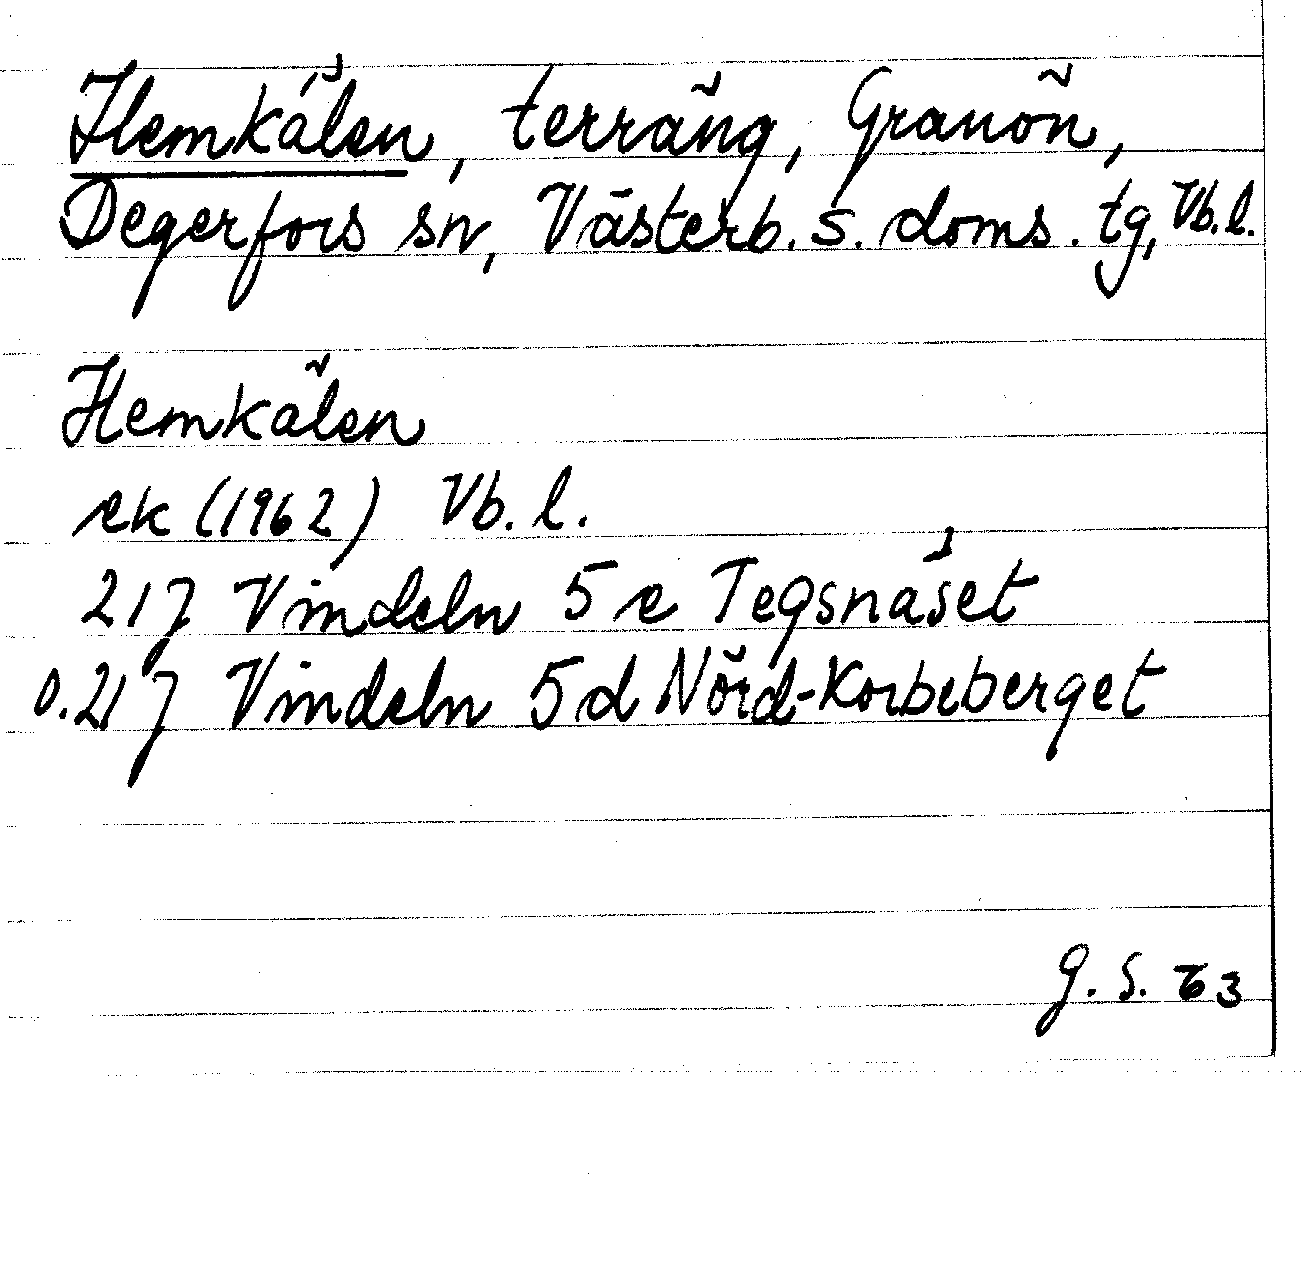 Hemkålen, terräng, Granön,
Degerfors sn, Västerb. s. doms. tg, Vb. l.
Hemkålen
ek (1962) Vb. l.
21J Vindeln 5e Tegsnäset
o. 21J Vindeln 5d Nörd-Korbeberget
G. S. 63